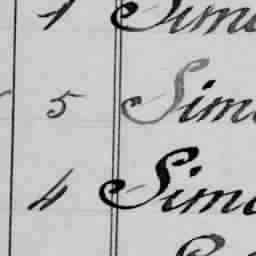 1 Sim
5 Sim
4 Sim